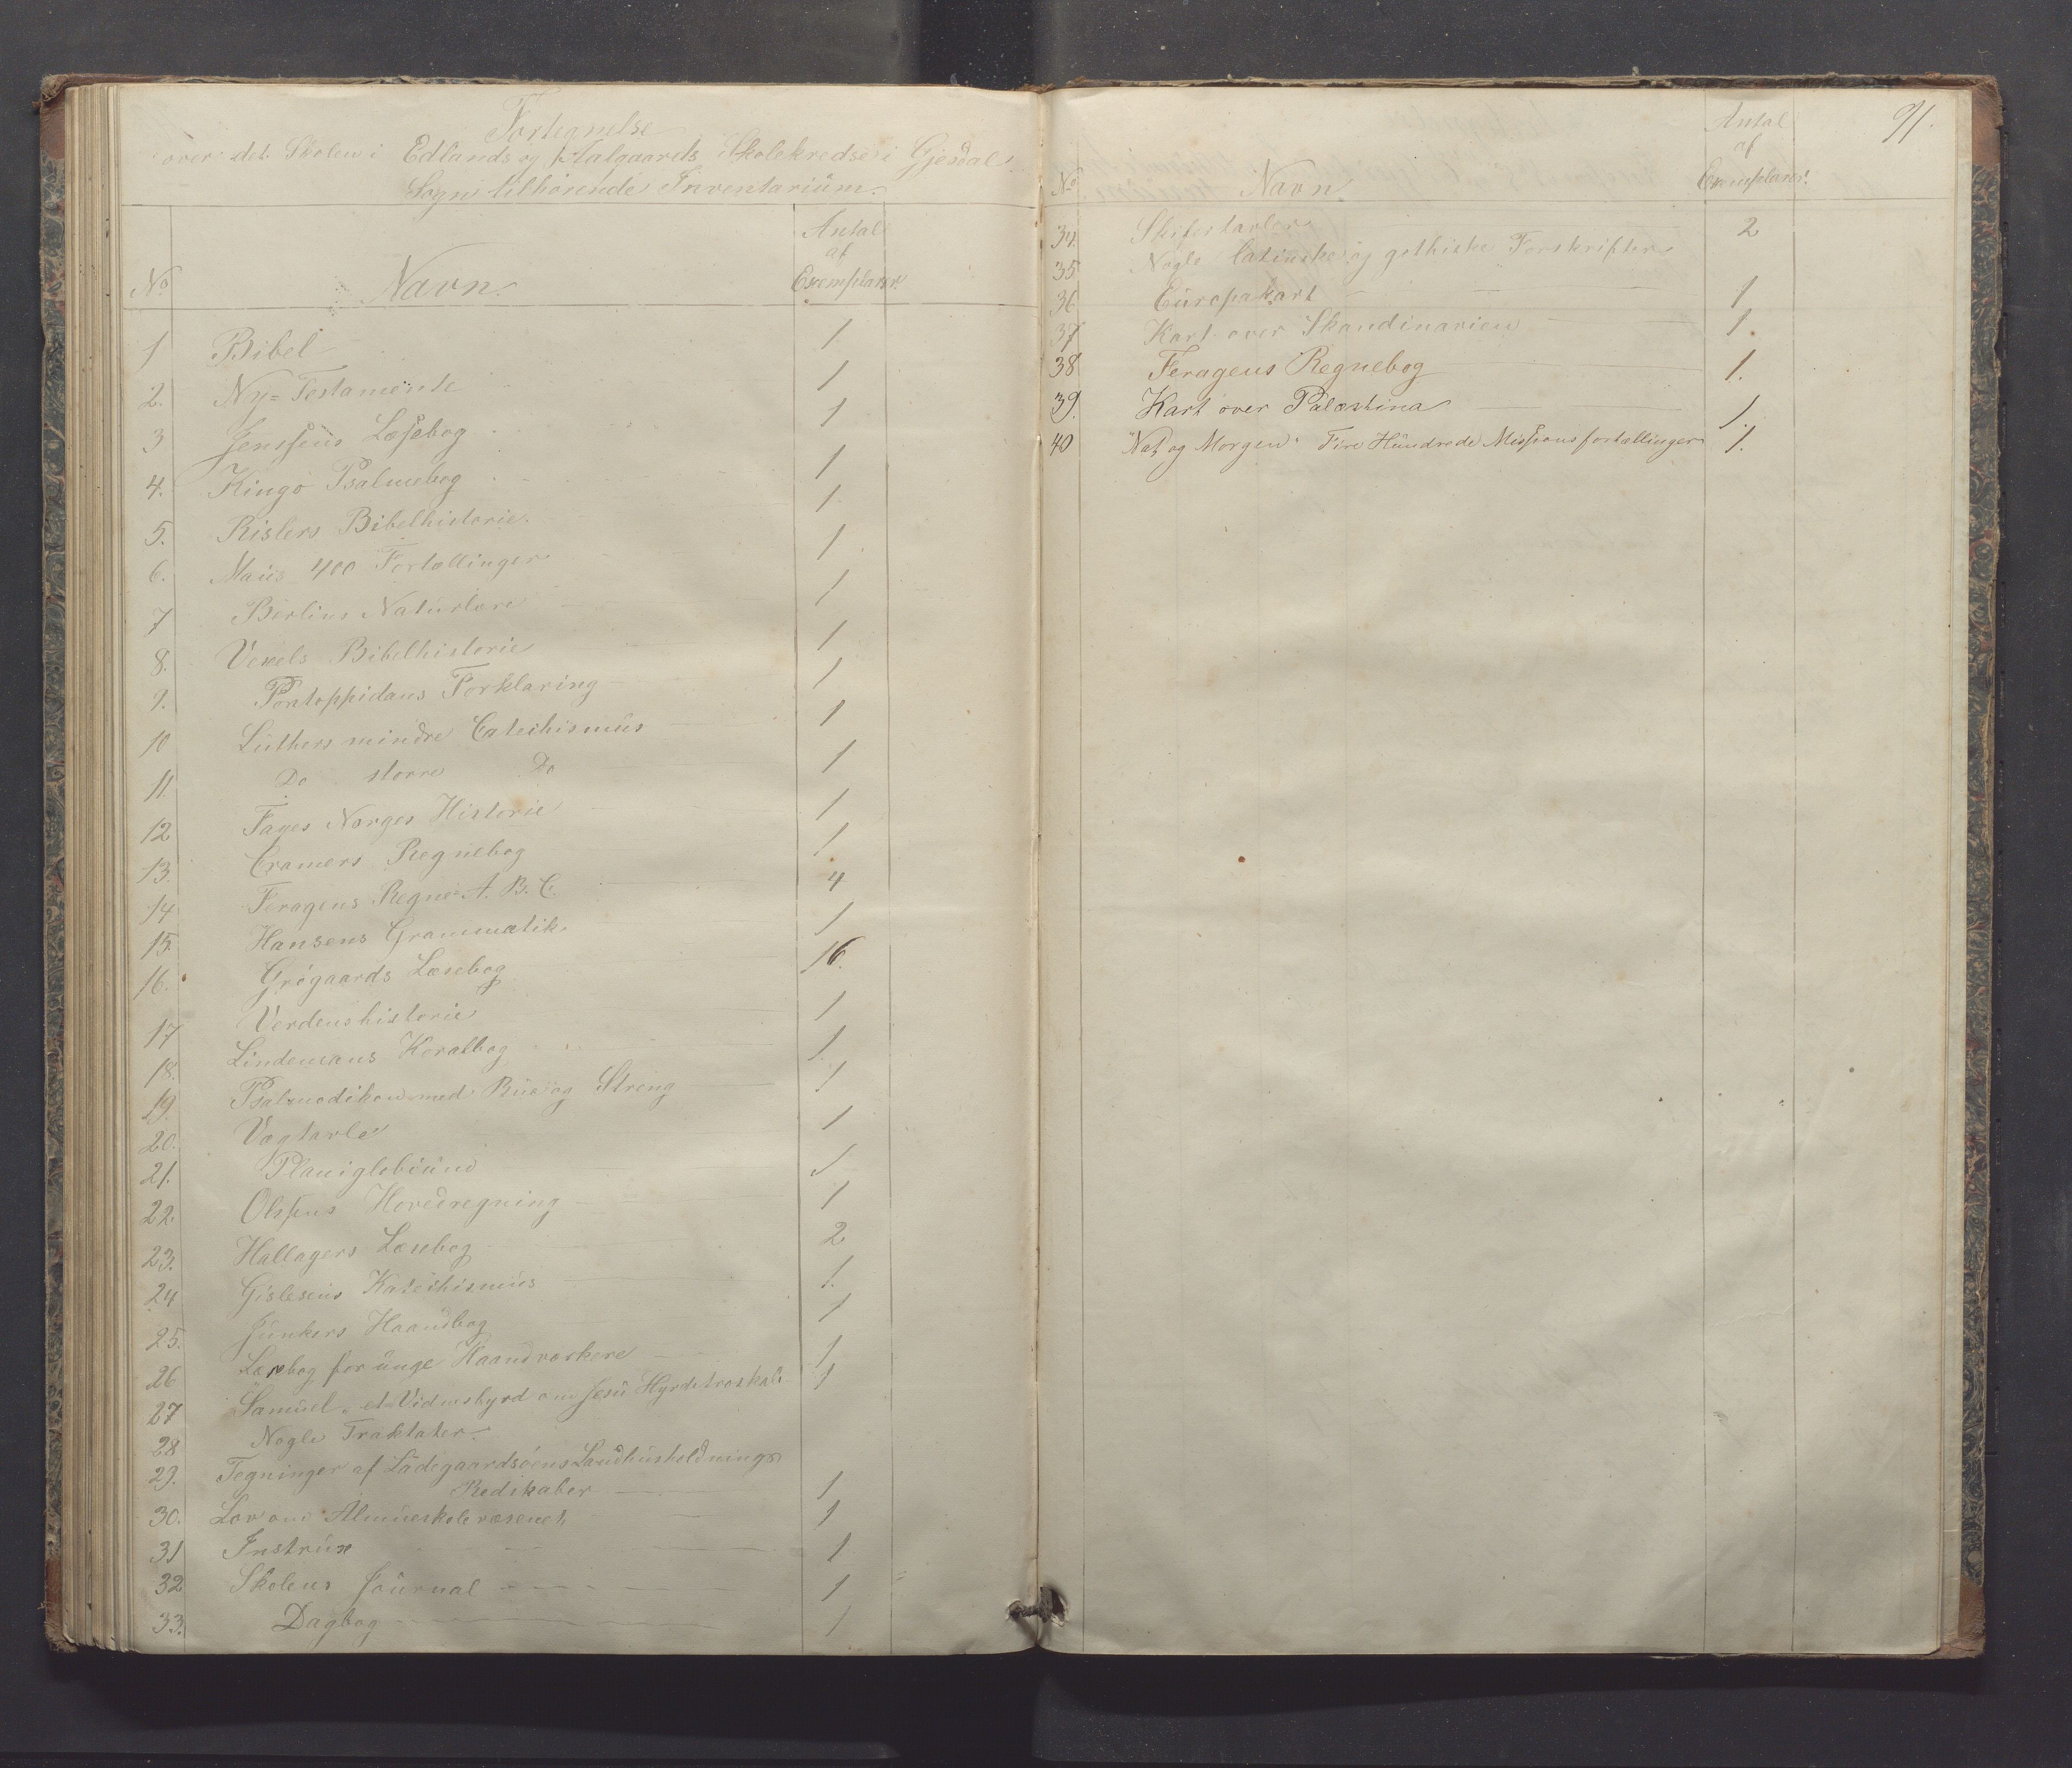 Fortegnelse
over det Skolen i Edlands og Aalgaards Skolekredse i Gjesdal
Sogn tilhørende Inventarium.
No Navn. Antal af Exemplarer
1 Bibel 1
2. Ny=Testamente 1
3 Jenssens Læsebog 1
4. Kingo Psalmebog 1
5. Rislers Bibelhistorie. 1
6. Maus 400 Fortællinger 1
7 Berlins Naturlære 1
8. Vexels Bibelhistorie 1
9. Pontoppidans Forklaring 1
10 Luthers mindre Catechismus 1
11. Do større Do 1
12 Fayes Norges Historie 1
13. Cramers Regnebog 1
14 Feragens Regne-A. B. C. 4
15. Hansens Grammatik. 1
16. Grøgaards Læsebog 16.
17 Verdenshistorie 1
18. Lindemans Koralbog 1.
19. Psalmodikon med Bue og Streng 1
20. Vægtavle 1
21. Planiglobium 1
22. Olssens Hovedregning 1
23. Hallagers Læsebog 2
24 Gislesens Katechismus 1.
25. Junkers Haandbog 1
26 Læsebog for unge Haandværkere 1
27 Samuel, et Vidnesbyrd om Jesu Hyrdetroskab 1
28 Nogle Traktater.
29. Tegninger af Ladegaardsøens Landhusholdnings
Redskaber 1
30. Lov om Almueskolevæsenet 1
31 Instrux 1
32 Skolens Journal 1
33. Dagbog 1
91.
No Navn. Antal af Exemplarer.
34. Skifertavler 2
35 Nogle latinske og gothiske Forskrifter
36 Europakart 1
37 Kart over Skandinavien 1.
38 Feragens Regnebog 1.
39. Kart over Palæstina 1.
40 "Nat og Morgen" Fire Hundrede Missionsfortællinger 1.